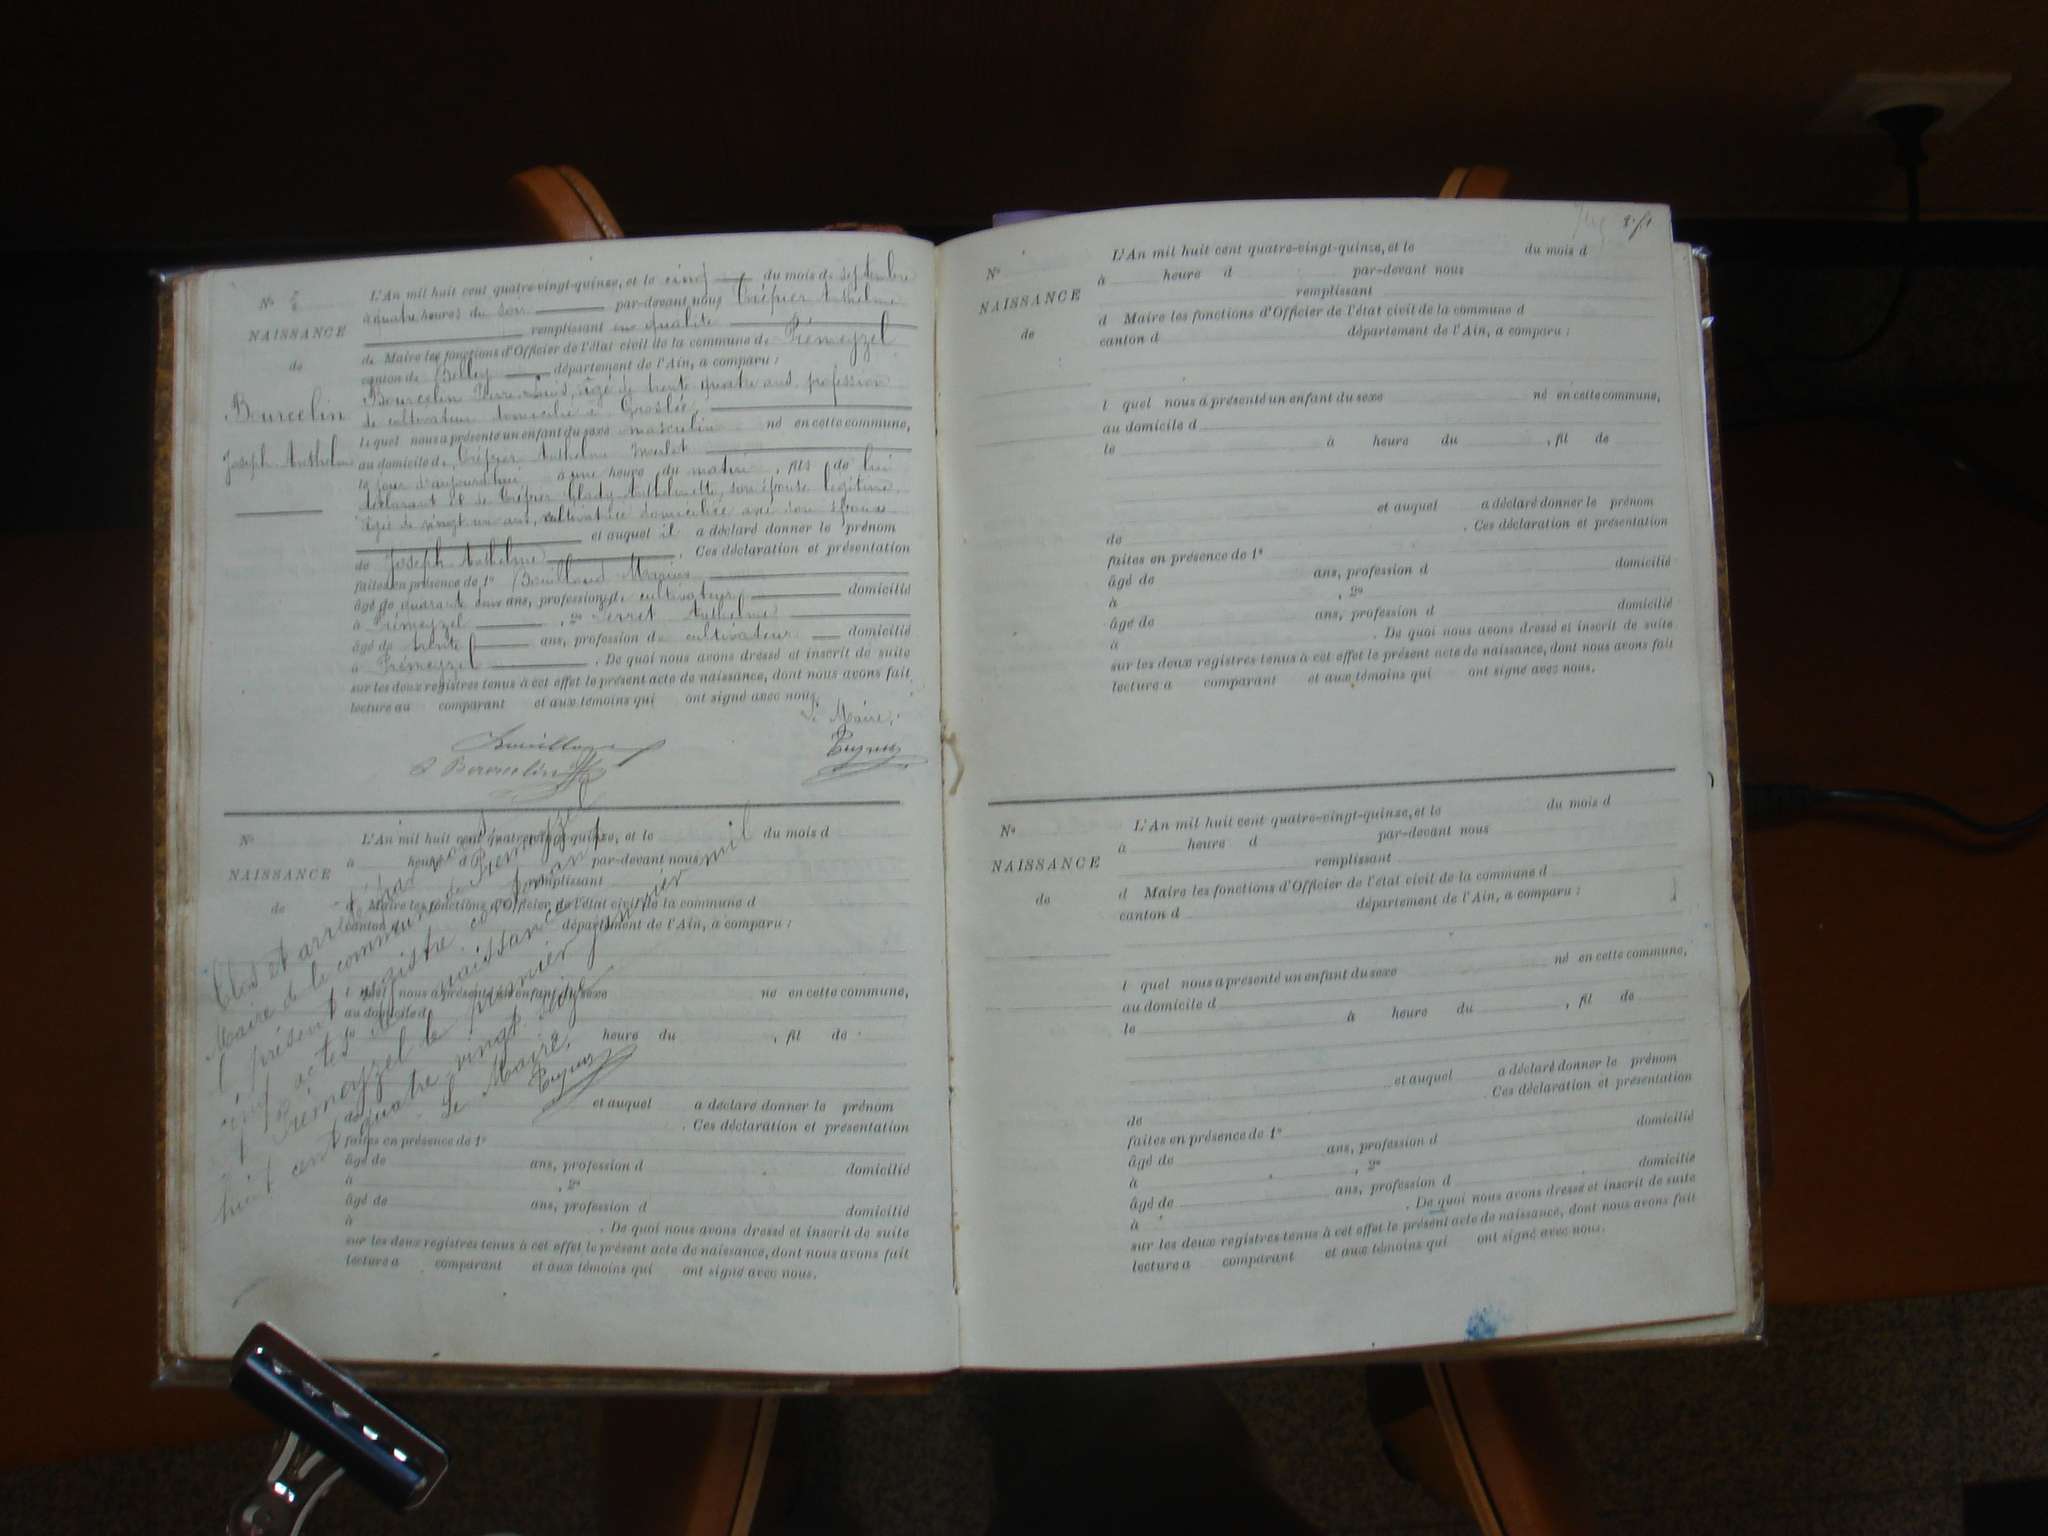 N° 5
NAISSANCE
de
Bourcelin
Joseph Anthelme
L'An mil huit cent quatre-vingt-quinze, et le cinq du mois de septembre
à quatre heures du soir par-devant nous Trépier Anthelme
remplissant en qualité
de Maire les fonctions d'Officier de l'état civil de la commune de Prémeyzel
canton de Belley département de l'Ain, a comparu :
Bourcelin Pierre Louis, âgé de trente quatre ans, profession
de cultivateur domicilié à Groslée
lequel nous a présenté un enfant du sexe masculin né en cette commune,
au domicile de Trépier Anthelme
le jour d'aujourd'hui à une heure du matin, fils de lui
déclarant et de Trépier Anthelmette, son épouse légitime,
âgée de vingt un ans, cultivatrice domiciliée avec son époux
et auquel il a déclaré donner le prénom
de Joseph Anthelme. Ces déclaration et présentation
faites en présence de 1° Bouilloud Marius
âgé de quarante deux ans, profession de cultivateur domicilié
à Prémeyzel, 2° Perret Anthelme
âgé de trente ans, profession de cultivateur domicilié
à Prémeyzel. De quoi nous avons dressé et inscrit de suite
sur les deux registres tenus à cet effet le présent acte de naissance, dont nous avons fait
lecture au comparant et aux témoins qui ont signé avec nous.
Le Maire,
Bourcelin
N°
NAISSANCE
de
L'An mil huit cent quatre-vingt-quinze, et le du mois d
à heure d par-devant nous
remplissant
d Maire les fonctions d'Officier de l'état civil de la commune d
canton d département de l'Ain, a comparu :
l quel nous a présenté un enfant du sexe né en cette commune,
au domicile d
heure du , fil de
et auquel a déclaré donner le prénom
de . Ces déclaration et présentation
faites en présence de 1°
âgé de ans, profession d domicilié
à , 2°
âgé de ans, profession d domicilié
à . De quoi nous avons dressé et inscrit de suite
sur les deux registres tenus à cet effet le présent acte de naissance, dont nous avons fait
lecture a comparant et aux témoins qui ont signé avec nous.
Clos et arrêté par nous
Maire de la commune de Prémeyzel
l présent registre contenant
cinq actes de naissance
Prémeyzel le premier janvier mil
huit cent quatre vingt seize
Le Maire,
N°
NAISSANCE
de
L'An mil huit cent quatre-vingt-quinze, et le du mois d
à heure d par-devant nous
remplissant
d Maire les fonctions d'Officier de l'état civil de la commune d
canton d département de l'Ain, a comparu :
l quel nous a présenté un enfant du sexe né en cette commune,
au domicile d
le à heure du , fil de
et auquel a déclaré donner le prénom
de . Ces déclaration et présentation
faites en présence de 1°
âgé de ans, profession d domicilié
à , 2°
âgé de ans, profession d domicilié
à . De quoi nous avons dressé et inscrit de suite
sur les deux registres tenus à cet effet le présent acte de naissance, dont nous avons fait
lecture a comparant et aux témoins qui ont signé avec nous.
N°
NAISSANCE
de
L'An mil huit cent quatre-vingt-quinze, et le du mois d
à heure d par-devant nous
remplissant
d Maire les fonctions d'Officier de l'état civil de la commune d
canton d département de l'Ain, a comparu :
l quel nous a présenté un enfant du sexe né en cette commune,
au domicile d
le à heure du , fil de
et auquel a déclaré donner le prénom
de . Ces déclaration et présentation
faites en présence de 1°
âgé de ans, profession d domicilié
à , 2°
âgé de ans, profession d domicilié
à . De quoi nous avons dressé et inscrit de suite
sur les deux registres tenus à cet effet le présent acte de naissance, dont nous avons fait
lecture a comparant et aux témoins qui ont signé avec nous.